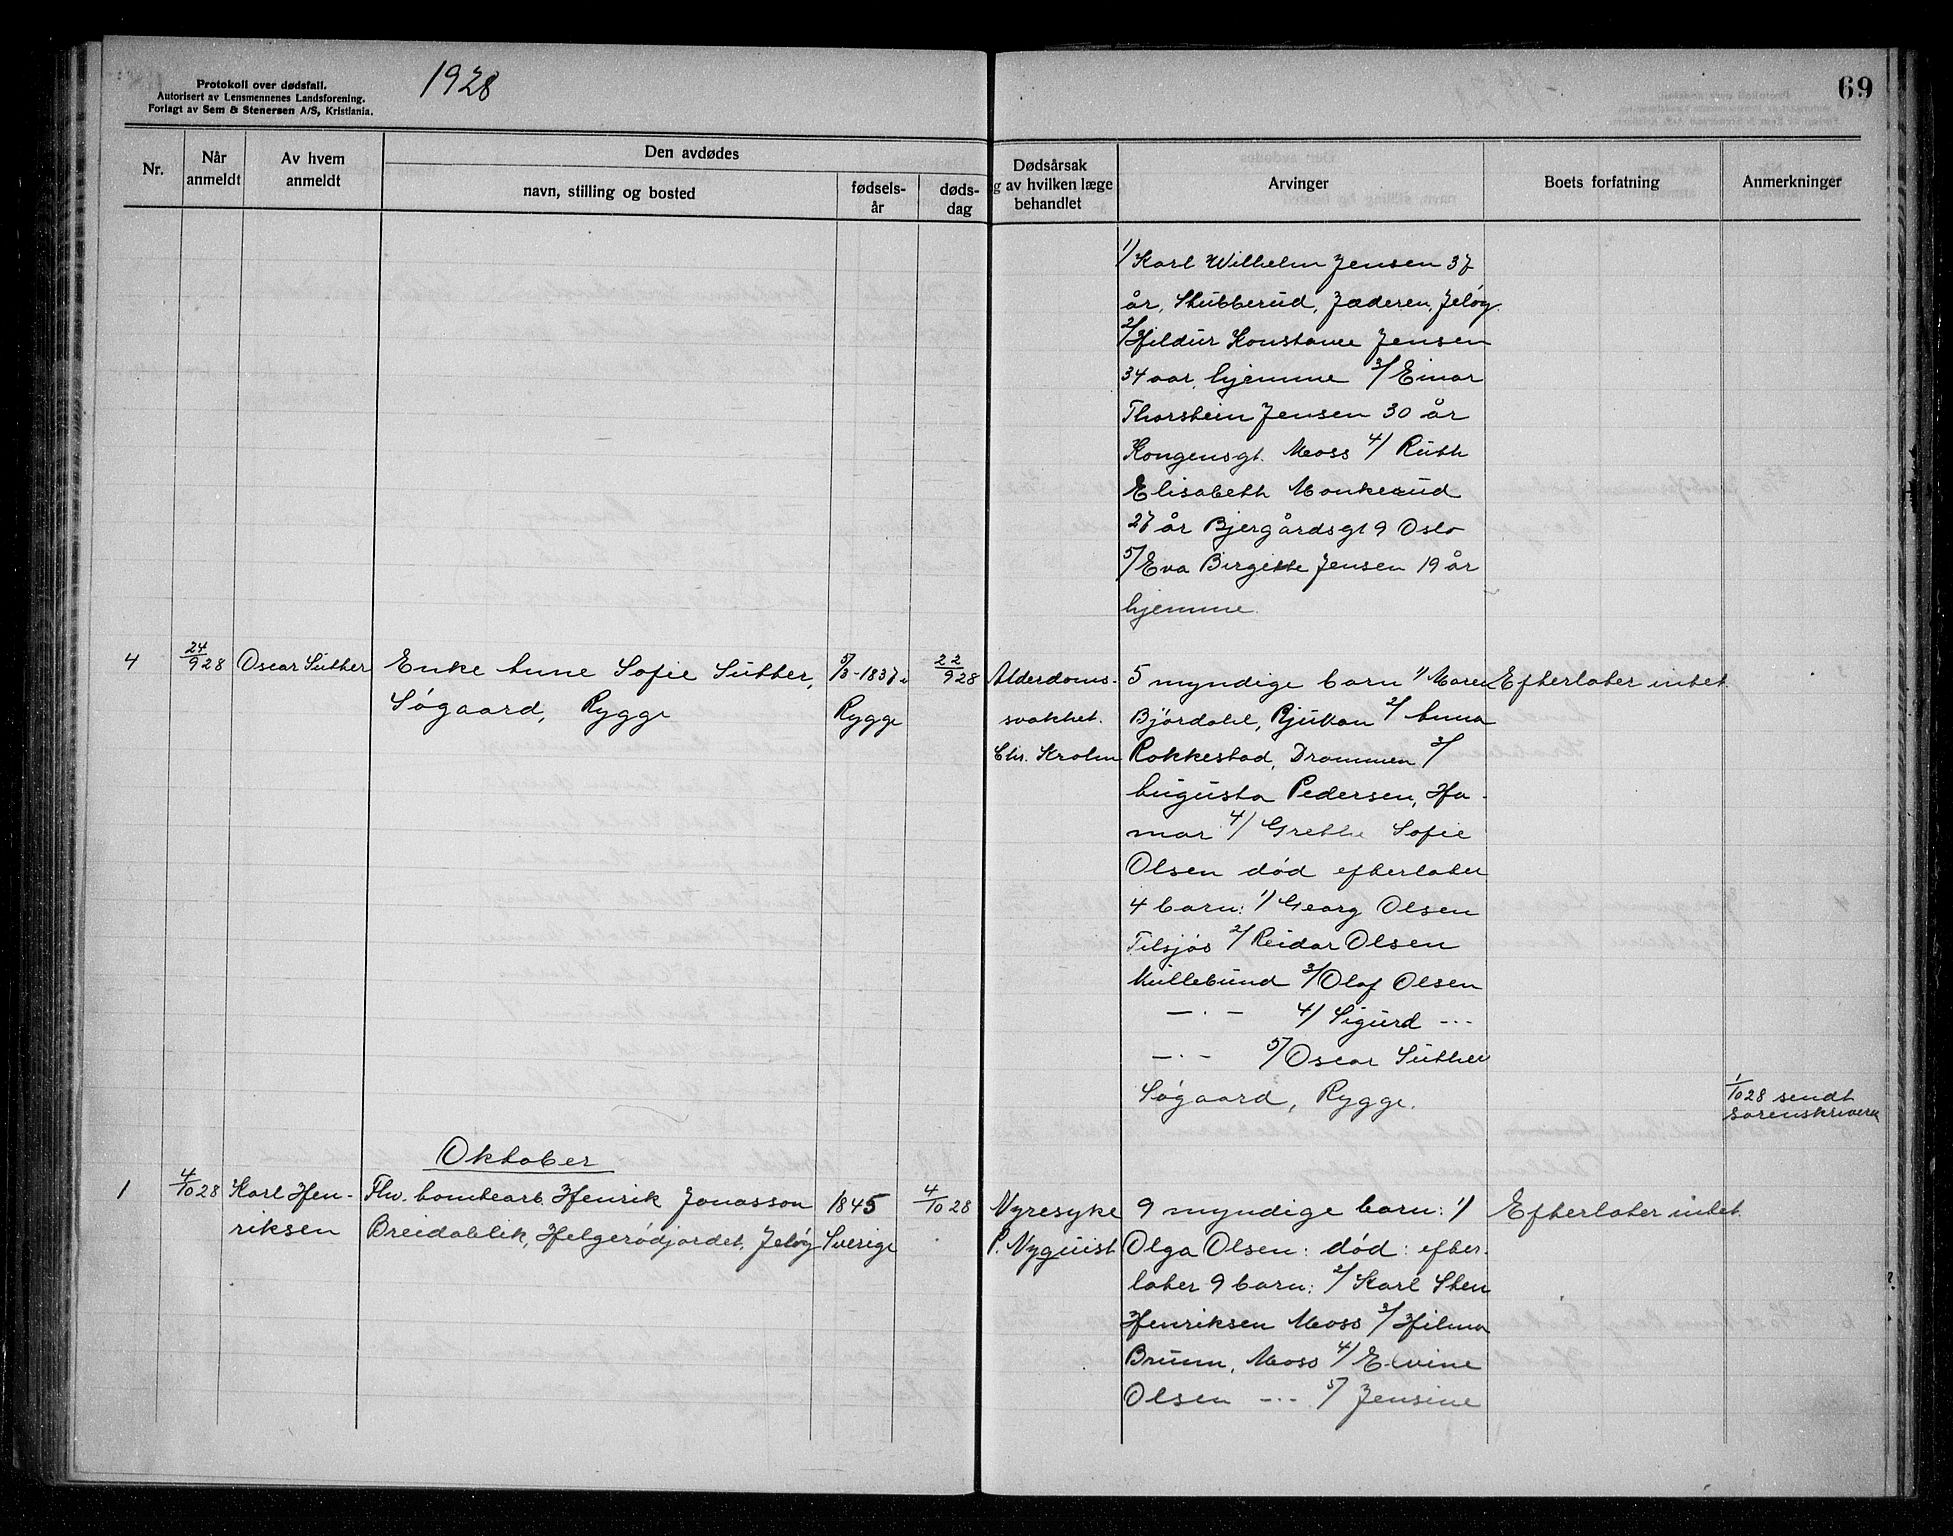 Protokoll over dødsfall.
Autorisert av Lensmennenes Landsforening.
Forlagt av Sem & Stenersen A/S, Kristiania.
1928
69
Nr.
Når anmeldt
Av hvem anmeldt
Den avdødes
navn, stilling og bosted
fødsels-år
døds-dag
Dødsårsak
g av hvilken læge
behandlet
Arvinger
Boets forfatning
Anmerkninger
1/ Karl Wilhelm Jensen 37
år, Stubberud, Jæderen, Jeløy.
2/ Hildur Konstance Jensen
34 aar, hjemme 3/ Einar
Thorstein Jensen 30 år
Kongensgt. Moss 4/ Ruth
Elisabeth Monkerud
27 år Bjergårdsgt 9 Oslo
5/ Eva Birgitte Jensen 19 år
hjemme.
4
24/9 28
Oscar Suther
Enke Anne Sofie Sutter,
Søgaard, Rygge
1837
Rygge
22/9 28
Alderdoms-
svakhet.
Chr. Krohn
5 myndige barn 1/ Maren
Bjørdahl, Rjukan 2/ Anna
Rokkestad, Drammen 3/
Augusta Pedersen, Ha-
mar 4/ Grethe Sofie
Olsen død efterlater
4 barn: 1/ Georg Olsen
2/ Reidar Olsen
Mullebund 3/ Olaf Olsen
—·— 4/ Sigurd —··
—·— 5/ Oscar Suther
Søgaard, Rygge.
Efterlater intet
1/10 28 sendt
sorenskriveren
Oktober
1
4/10 28
Karl Hen-
riksen
Fhv. tomtearb. Henrik Jonasson
Breidablik, Helgerødjordet, Jeløy
1845
Sverige
4/10 28
Nyresyke
P. Nyquist
9 myndige barn: 1/
Olga Olsen: død: efter-
later 9 barn: 2/ Karl Sten
Henriksen Moss 3/ Hilma
Brunn, Moss 4/ Elvine
Olsen —·· 5/ Jensine
Efterlater intet.